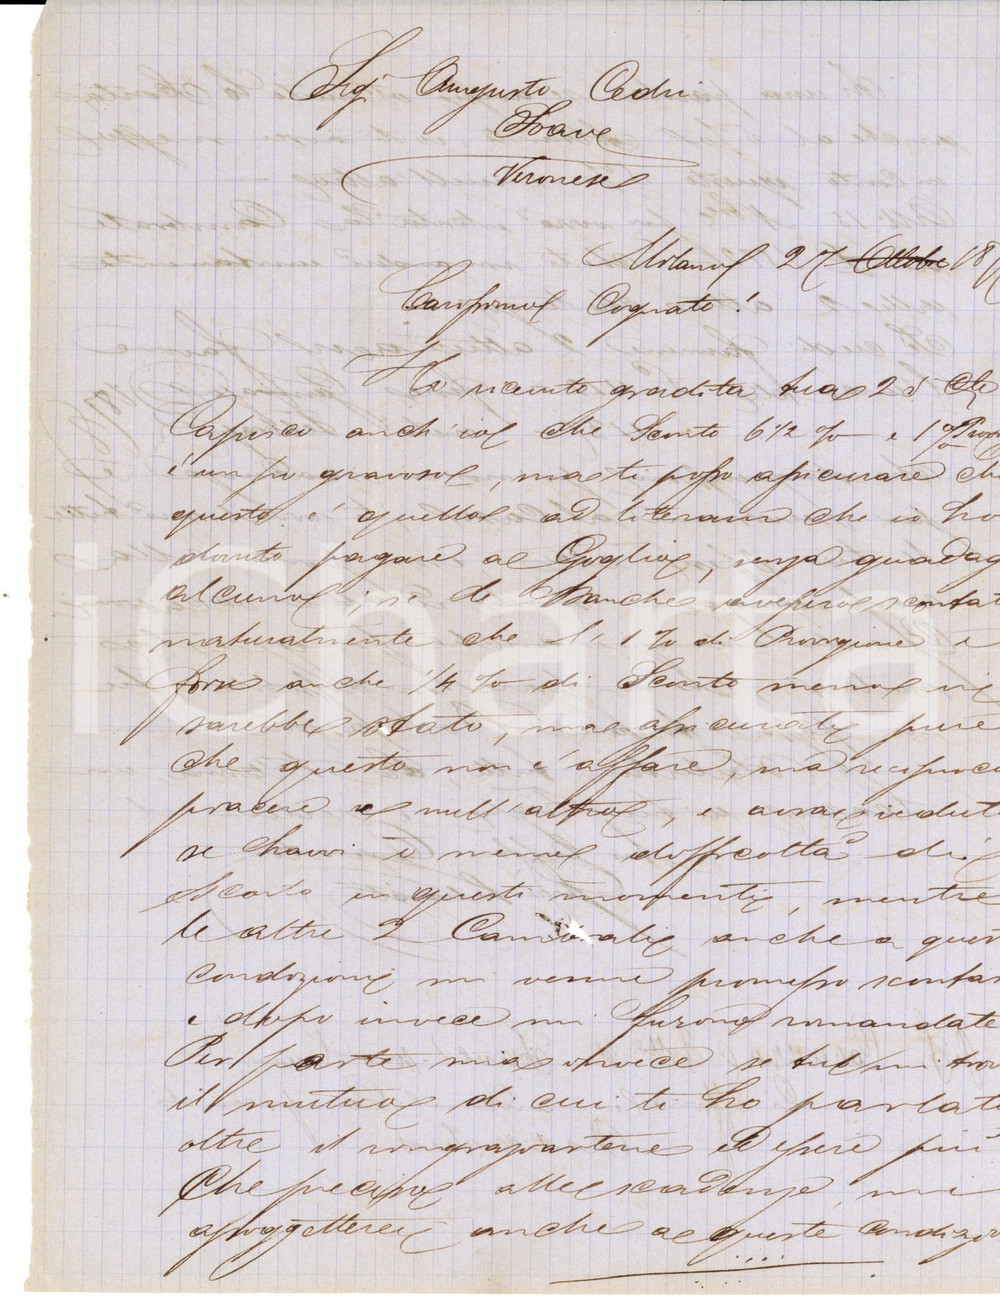 Sig Augusto Cedri
Soave
Veronese
Milano 27 Ottobre 18
Carissimo Cognato!
Ho ricevuto gradita tua 25
Capisco anch'io che Sconto 6 1/2 % e 1 %
è un po gravoso, ma ti posso assicurare che
questo è quello ad literam che io ho
dovuto pagare al Goglio, senza guadag
alcuno; se le Banche avessero scontat
naturalmente che l' 1 % di Provigione e
forse anche 1/4 % di Sconto meno vi
sarebbe stato, ma assicurati pure
che questo non è affare, ma reciproco
piacere e null'altro, e avrai vedut
se havvi o meno difficoltà di
Sconto in questi momenti, mentre
le altre 2 Cambiali anche a ques
condizioni mi venne promesso scontar
e dopo invece mi furono rimandate
Per parte mia invece se tu mi trov
il mutuo di cui ti ho parlat
oltre il ed essere più
Che preciso alle scadenze, mi
assoggetterei anche a queste condizio
iCharta